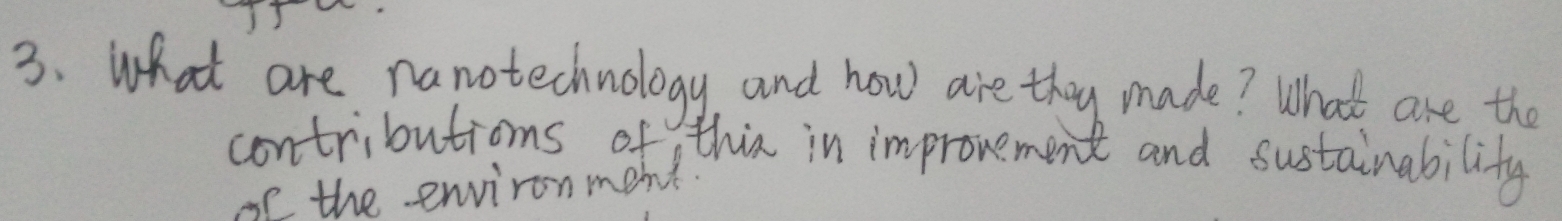 3. What are nanotechnology and how are they made? What are the
contributions of this in improvement and sustainability
of the environment.